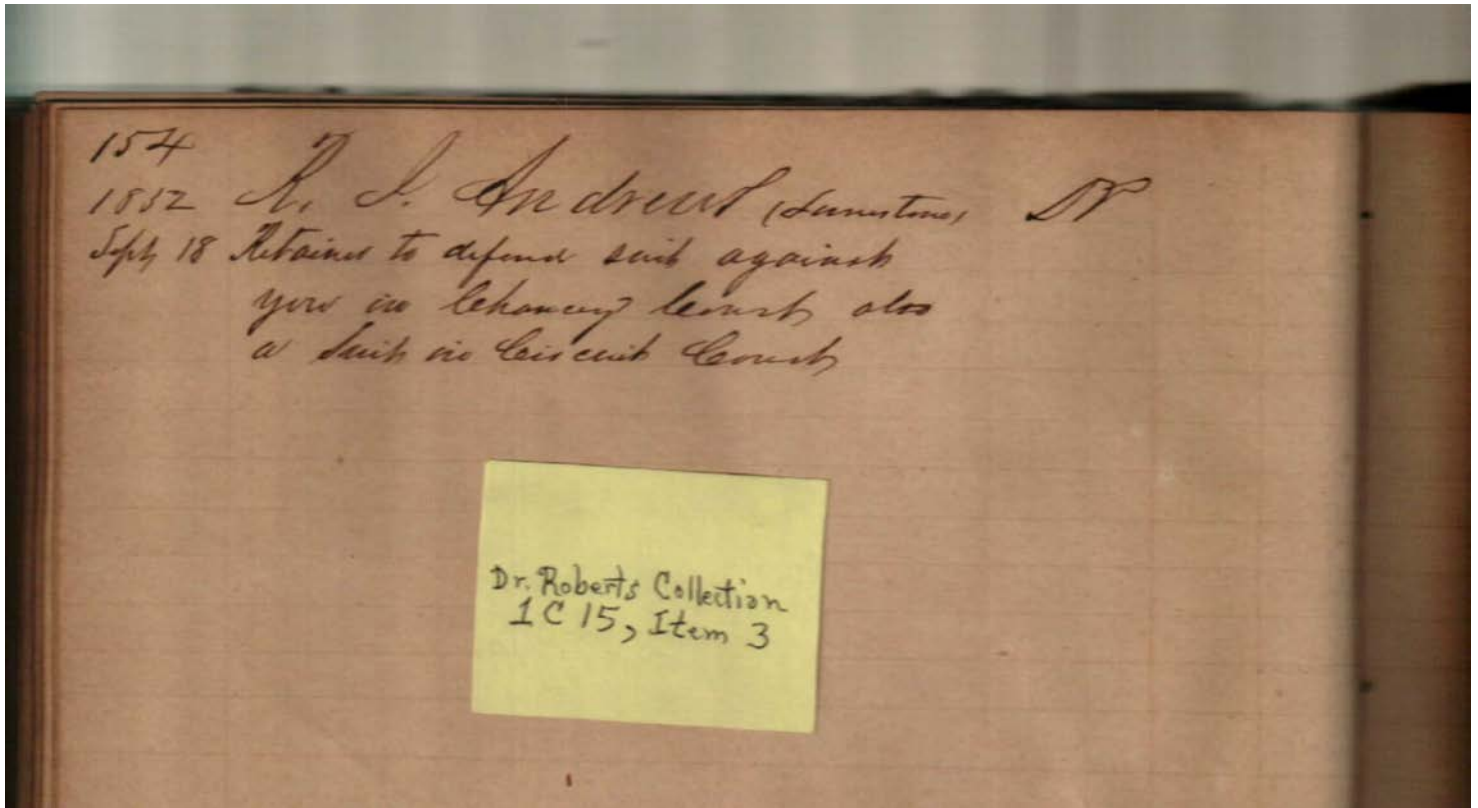 154
1852 R. J. Andrews (Limestone) Dr
Sept 18 Retainer to defend suit against
you in Chancery Court also
a Suit in Circuit Court
Dr. Roberts Collection
1C15, Item 3